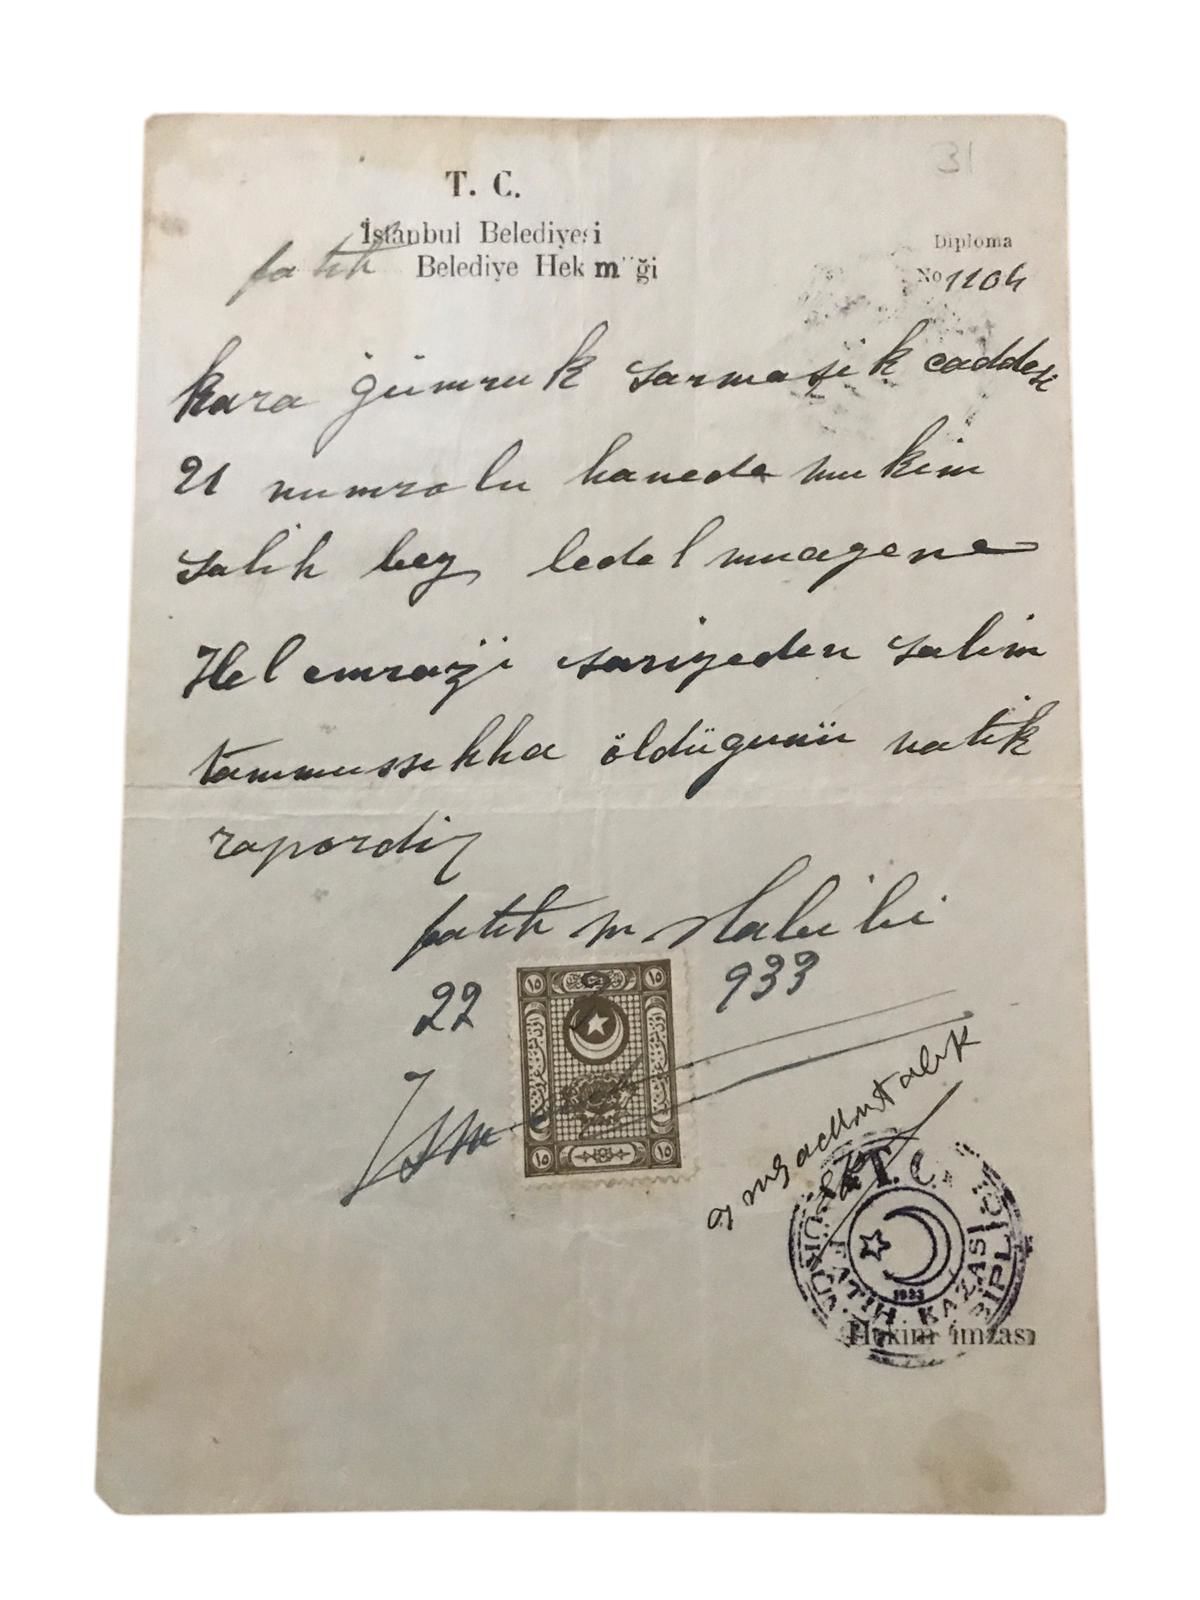 31
T. C.
İstanbul Belediyesi
fatih Belediye Hekimliği
Diploma
No 1104
kara gümruk sarmaşik caddesi
21 numrolu hanede mukim
salih bey ledel muayene
Hel emrazi sariyeden salim
tammussihha öldügunü natik
rapordir
fatih m Habibi
22 933
١٥ ١٥
١٥ ١٥
T. C.
FATİH KAZASI
1933
Hekim imzası